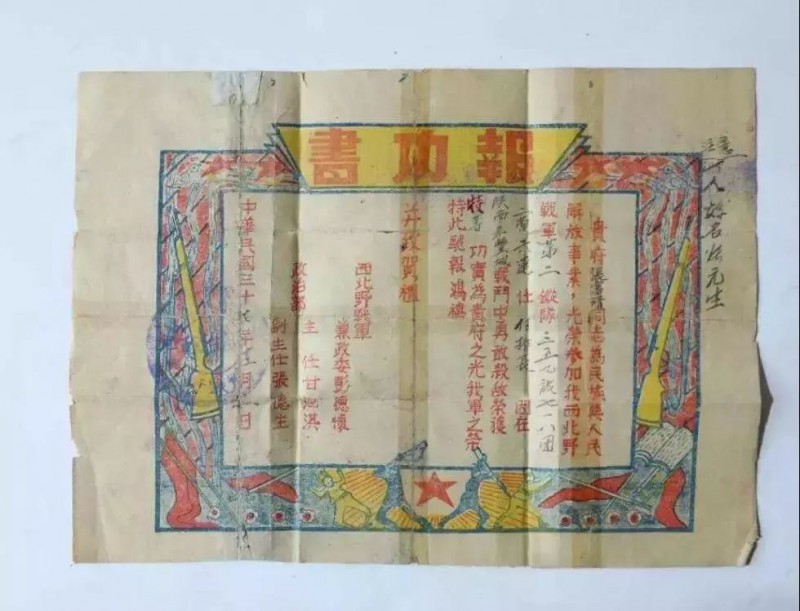 報功書
貴府張富清同志為民族與人民
解放事業，光榮參加我西北野
戰軍第二縱隊三五九旅七一八團
二营六连任付排長因在
陝西永豐城戰鬥中勇敢殺敵榮獲
特等功實為貴府之光我軍之榮
特此馳報鴻禧
并致賀禮
西北野戰軍
兼政委彭德懷
政治部
主任甘泗淇
副主任張德生
中華民國三十七年十二月日